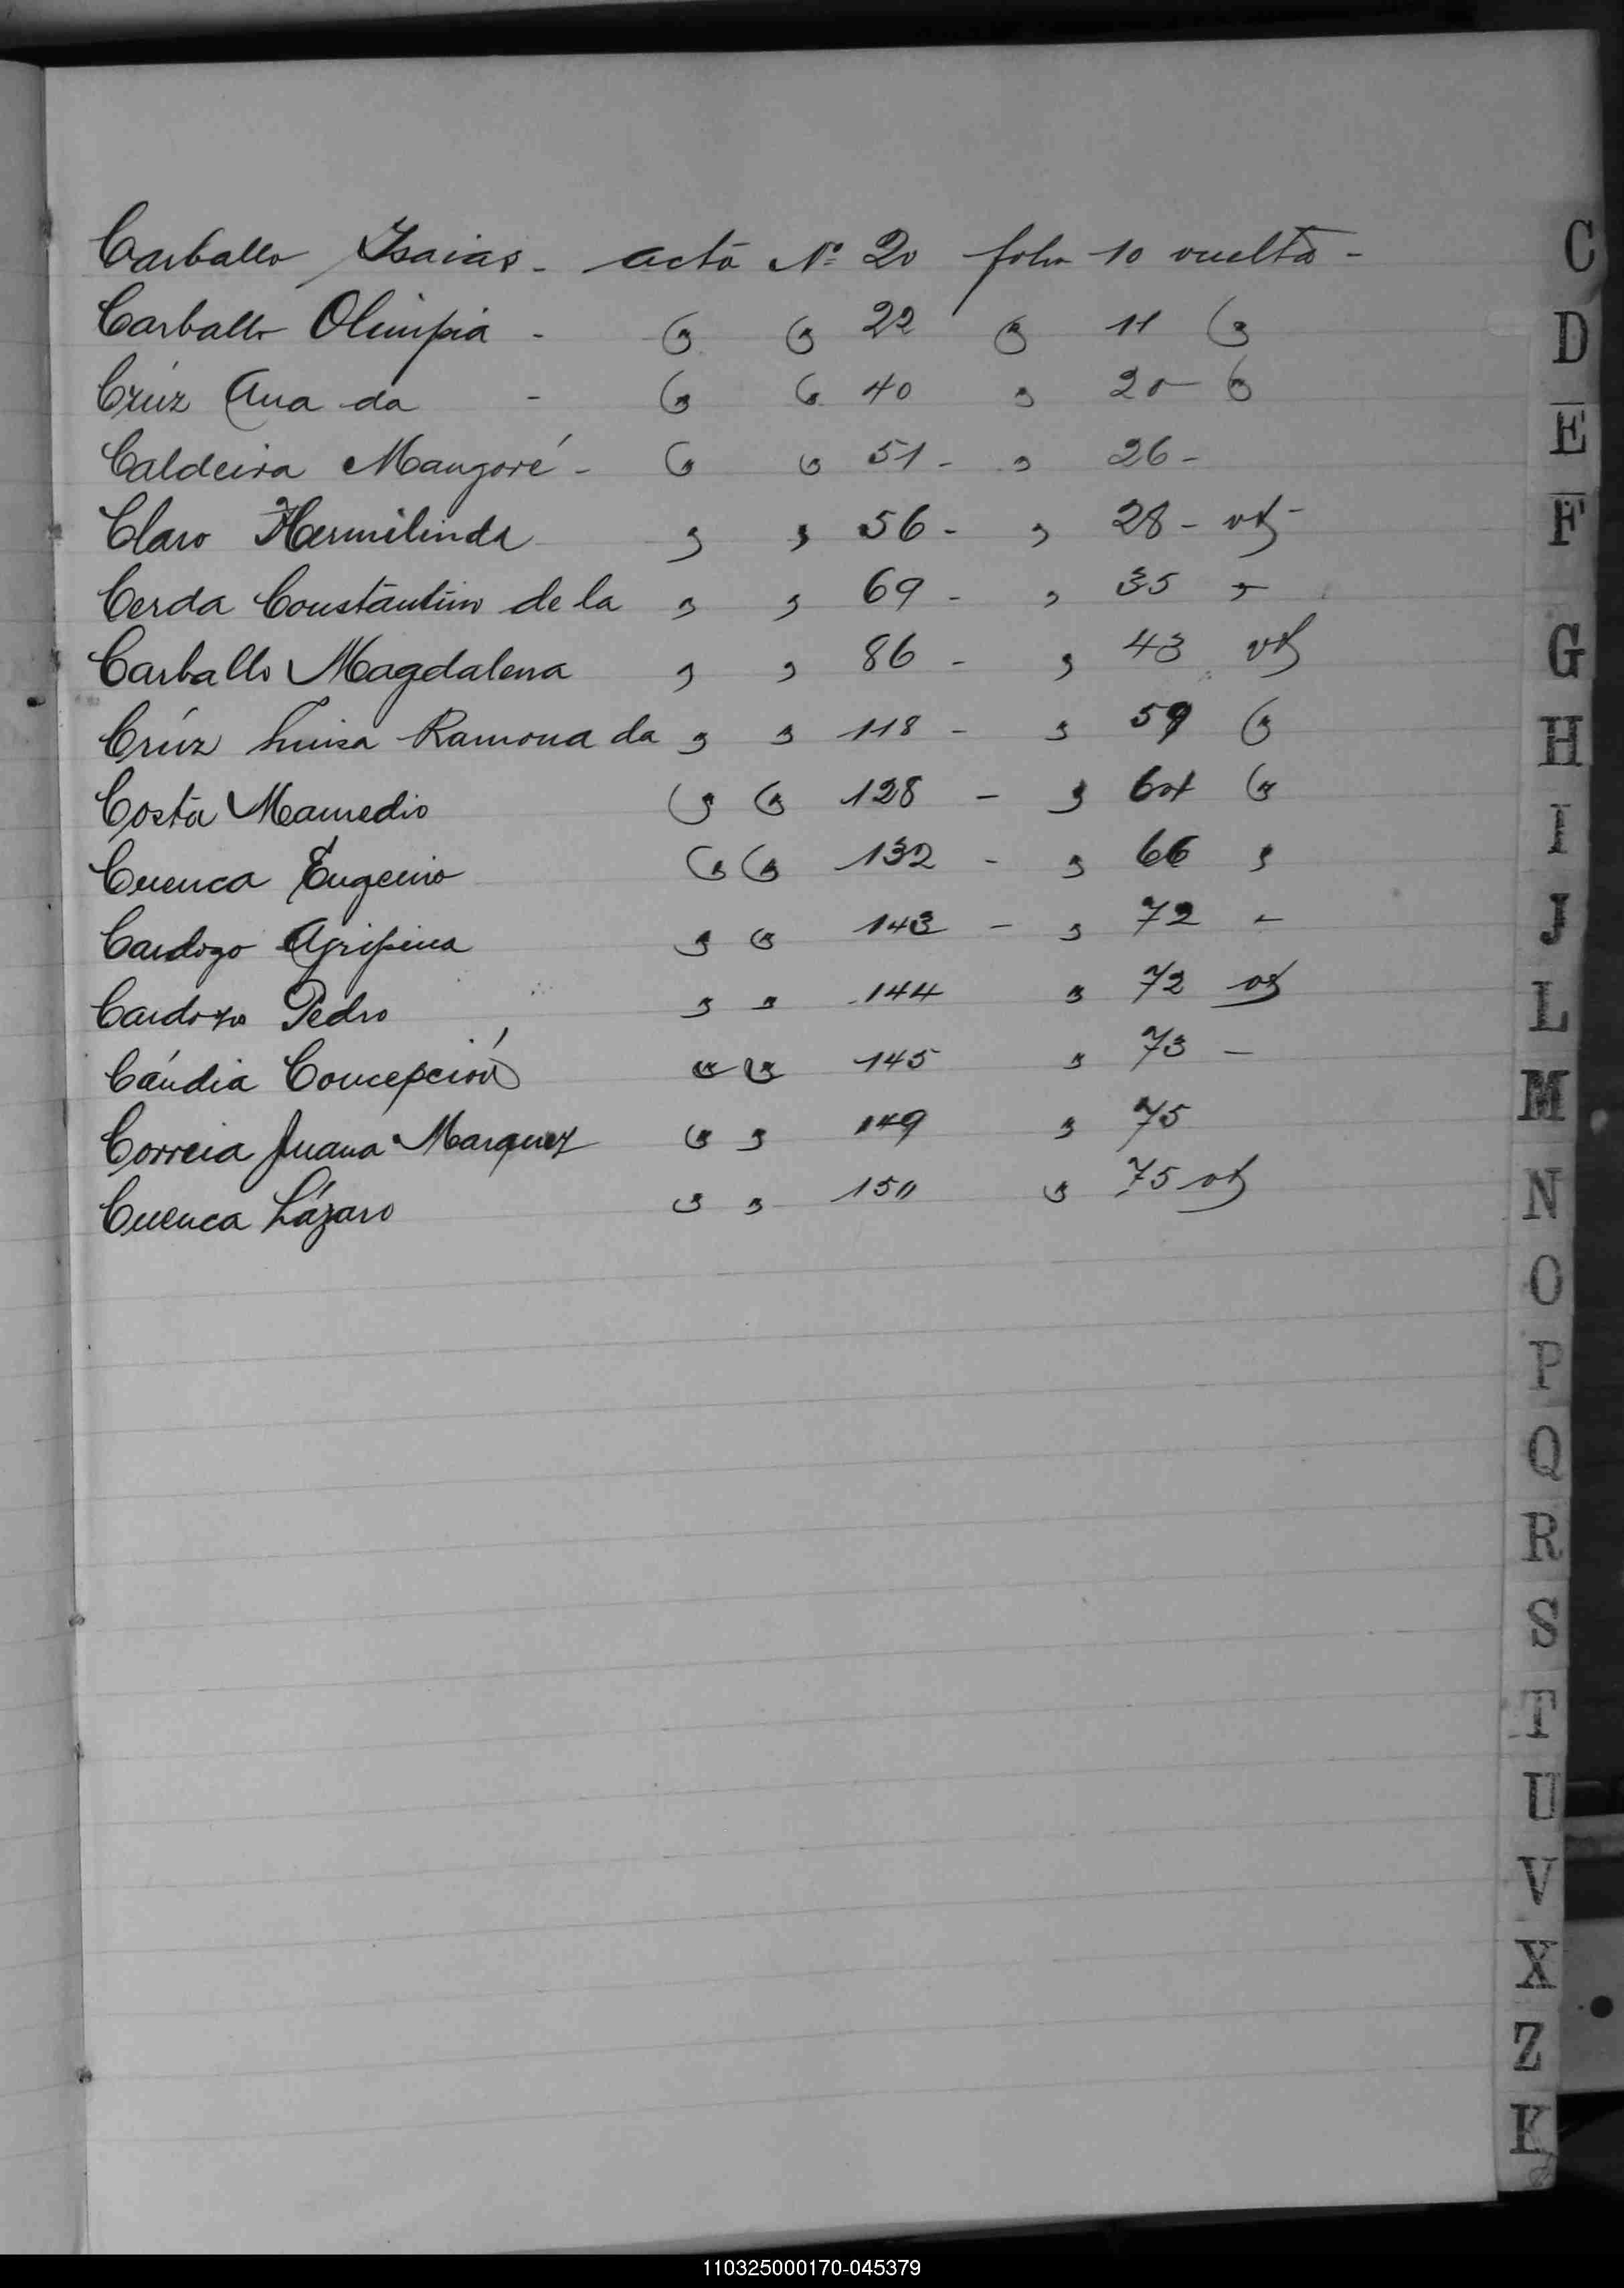 Carballo Isaias - acta Nº 20 folio 10 vuelta -
Carballo Olimpia - " " 22 " 11 "
Crúz Ana da - " " 40 " 20 - "
Caldeira Mangoré - " " 51 - " 26 -
Claro Hermilinda " " 56 - " 28 - vta -
Cerda Constantino de la " " 69 - " 35 -
Carballo Magdalena " " 86 - " 43 vta
Crúz Luisa Ramona da " " 118 - " 59 "
Costa Mamedio " " 128 - " 64 "
Cuenca Eugenio " " 132 - " 66 "
Cardozo Agripina " " 143 - " 72 -
Cardozo Pedro " " 144 " 72 vta
Cándia Concepción " " 145 " 73 -
Correia Juana Marquez " " 149 " 75
Cuenca Lázaro " " 150 " 75 vta
C
D
E
F
G
H
I
J
L
M
N
O
P
Q
R
S
T
U
V
X
Z
K
110325000170-045379